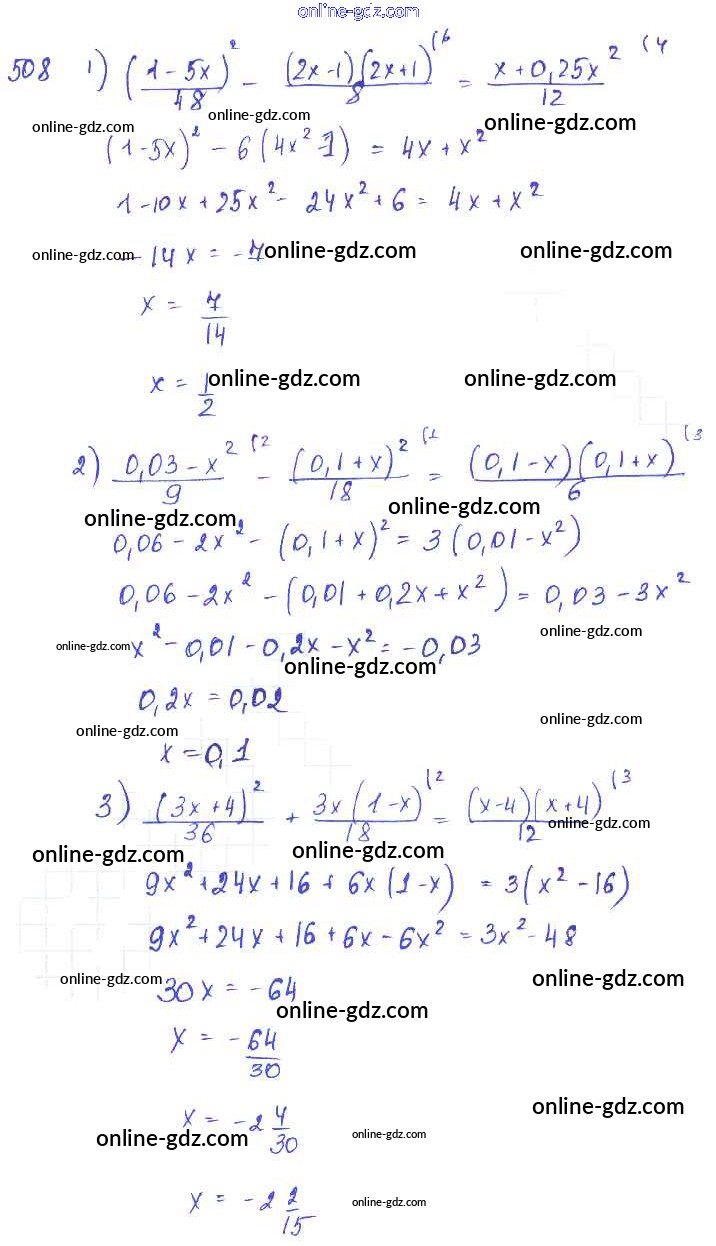 online-gdz.com
508 1) (1-5x)²/48 - (2x-1)(2x+1)/8 (6 = x+0,25x²/12 (4
online-gdz.com online-gdz.com online-gdz.com
(1-5x)² - 6(4x²-1) = 4x+x²
1-10x+25x²-24x²+6 = 4x+x²
online-gdz.com -14x = -7 online-gdz.com online-gdz.com
x = 7/14
x = 1/2 online-gdz.com online-gdz.com
2) 0,03-x²/9 (2 - (0,1+x)²/18 (1 = (0,1-x)(0,1+x)/6 (3
online-gdz.com online-gdz.com
0,06-2x² - (0,1+x)² = 3(0,01-x²)
0,06-2x² - (0,01+0,2x+x²) = 0,03-3x²
online-gdz.com x²-0,01-0,2x-x² = -0,03 online-gdz.com
online-gdz.com
0,2x = 0,02
online-gdz.com online-gdz.com
x = 0,1
3) (3x+4)²/36 + 3x(1-x)/18 (2 = (x-4)(x+4)/12 (3
online-gdz.com online-gdz.com online-gdz.com
9x²+24x+16+6x(1-x) = 3(x²-16)
9x²+24x+16+6x-6x² = 3x²-48
online-gdz.com 30x = -64 online-gdz.com
online-gdz.com
x = -64/30
x = -2 4/30 online-gdz.com
online-gdz.com online-gdz.com
x = -2 2/15 online-gdz.com